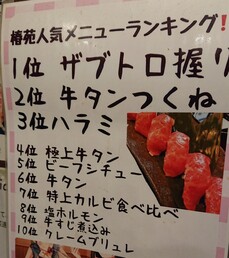 椿苑人気メニューランキング!
1位 ザブトロ握り
2位 牛タンつくね
3位 ハラミ
4位 極上牛タン
5位 ビーフシチュー
6位 牛タン
7位 特上カルビ食べ比べ
8位 塩ホルモン
9位 牛すじ煮込み
10位 クレームブリュレ